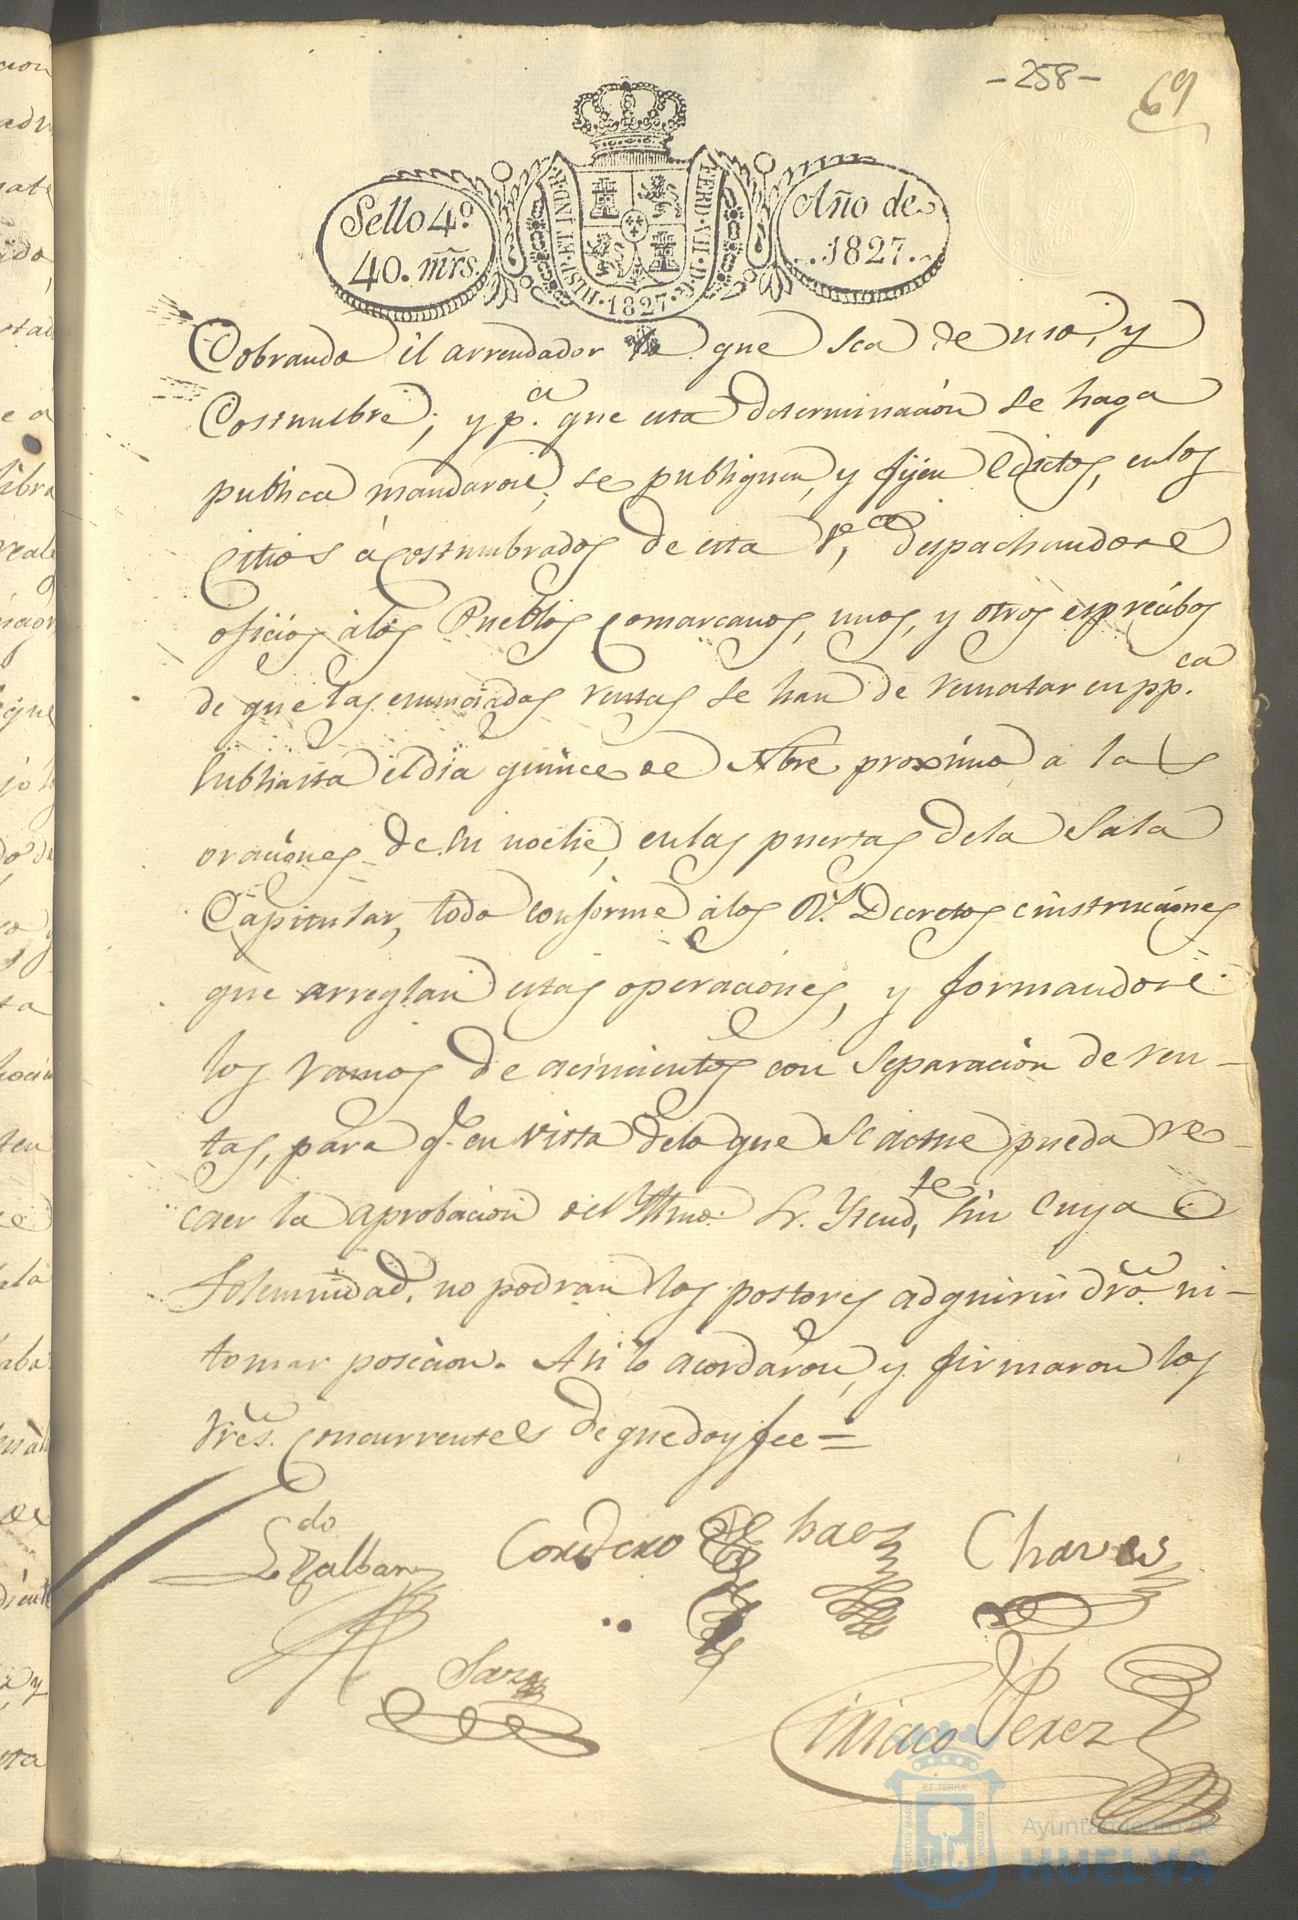 -258-
69
Sello 4.º
40. mrs.
HISP. ET IND. R.
FERD. VII. D. G.
·1827·
Año de
1827.
Cobrando el arrendador lo que sea de uso, y
Costumbre; y p.ª que esta determinacion se haga
publica mandaron, se publiquen, y fijen Edictos, en los
citios acostumbrados de esta V.ª, despachandose
oficios à los Pueblos Comarcanos, unos, y otros exprecibos
de que las enunciadas rentas se han de rematar en pp.ca
subhasta el dia quince de Nbre proximo a las
oraciones de su noche, en las puertas de la Sala
Capitular, todo conforme à los R.s Decretos e instruciones
que arreglan estas operaciones, y formandose
los ramos de acimientos con separacion de ren-
tas, para q.e en vista de lo que se actue pueda re-
caer la aprobacion del Yltmo. Sr. Ytend.te, sin cuya
Solemnidad, no podran los postores adquirir dro. ni-
tomar posecion. Asi lo acordaron, y firmaron los
Sres. Concurrentes de que doy fee =
L.do Zalbar
Cordero
Chaves
Sanz
Ciriaco Perez
ET TERRÆ
PORTUS MARIS
CUSTODIA
Ayuntamiento de
HUELVA